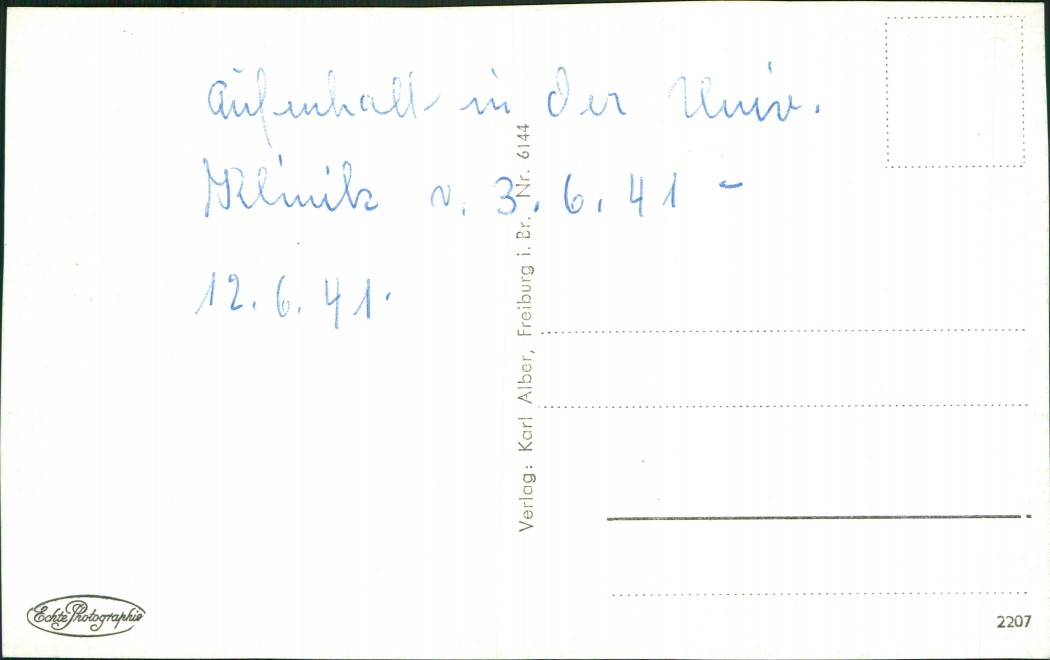 Aufenhalt in der Univ.
Klinik v. 3.6.41 -
12.6.41.
Verlag: Karl Alber, Freiburg i. Br. Nr. 6144
Echte Photographie
2207